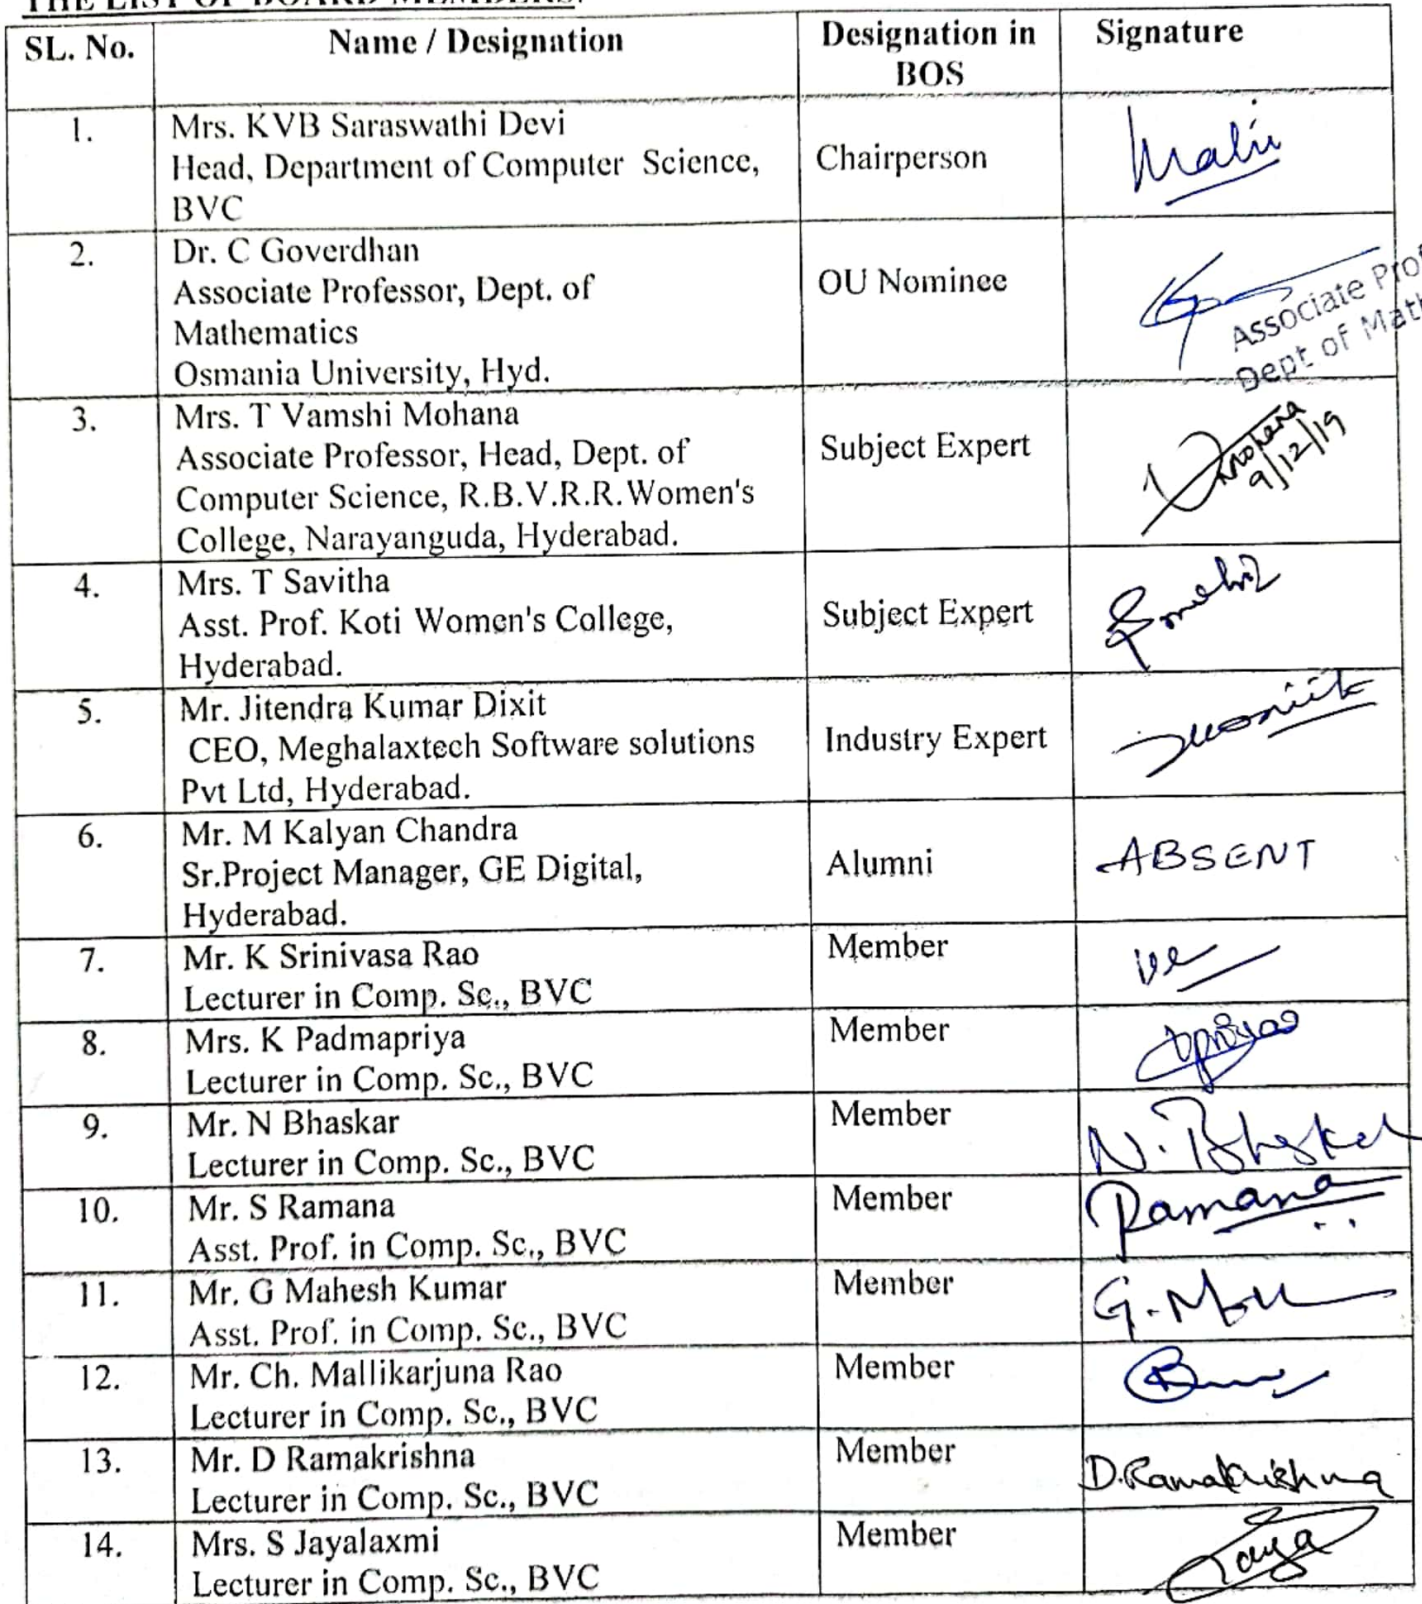 THE LIST OF BOARD MEMBERS:
SL. No. Name / Designation Designation in BOS Signature
1. Mrs. KVB Saraswathi Devi
Head, Department of Computer Science,
BVC
Chairperson
2. Dr. C Goverdhan
Associate Professor, Dept. of
Mathematics
Osmania University, Hyd.
OU Nominee
Associate Prof
Dept of Math
3. Mrs. T Vamshi Mohana
Associate Professor, Head, Dept. of
Computer Science, R.B.V.R.R.Women's
College, Narayanguda, Hyderabad.
Subject Expert
Mohana
9/12/19
4. Mrs. T Savitha
Asst. Prof. Koti Women's College,
Hyderabad.
Subject Expert
5. Mr. Jitendra Kumar Dixit
CEO, Meghalaxtech Software solutions
Pvt Ltd, Hyderabad.
Industry Expert
6. Mr. M Kalyan Chandra
Sr.Project Manager, GE Digital,
Hyderabad.
Alumni
ABSENT
7. Mr. K Srinivasa Rao
Lecturer in Comp. Sc., BVC
Member
8. Mrs. K Padmapriya
Lecturer in Comp. Sc., BVC
Member
9. Mr. N Bhaskar
Lecturer in Comp. Sc., BVC
Member
N. Bhaskar
10. Mr. S Ramana
Asst. Prof. in Comp. Sc., BVC
Member
Ramana
11. Mr. G Mahesh Kumar
Asst. Prof. in Comp. Sc., BVC
Member
12. Mr. Ch. Mallikarjuna Rao
Lecturer in Comp. Sc., BVC
Member
13. Mr. D Ramakrishna
Lecturer in Comp. Sc., BVC
Member
D.Ramakrishna
14. Mrs. S Jayalaxmi
Lecturer in Comp. Sc., BVC
Member
Jaya